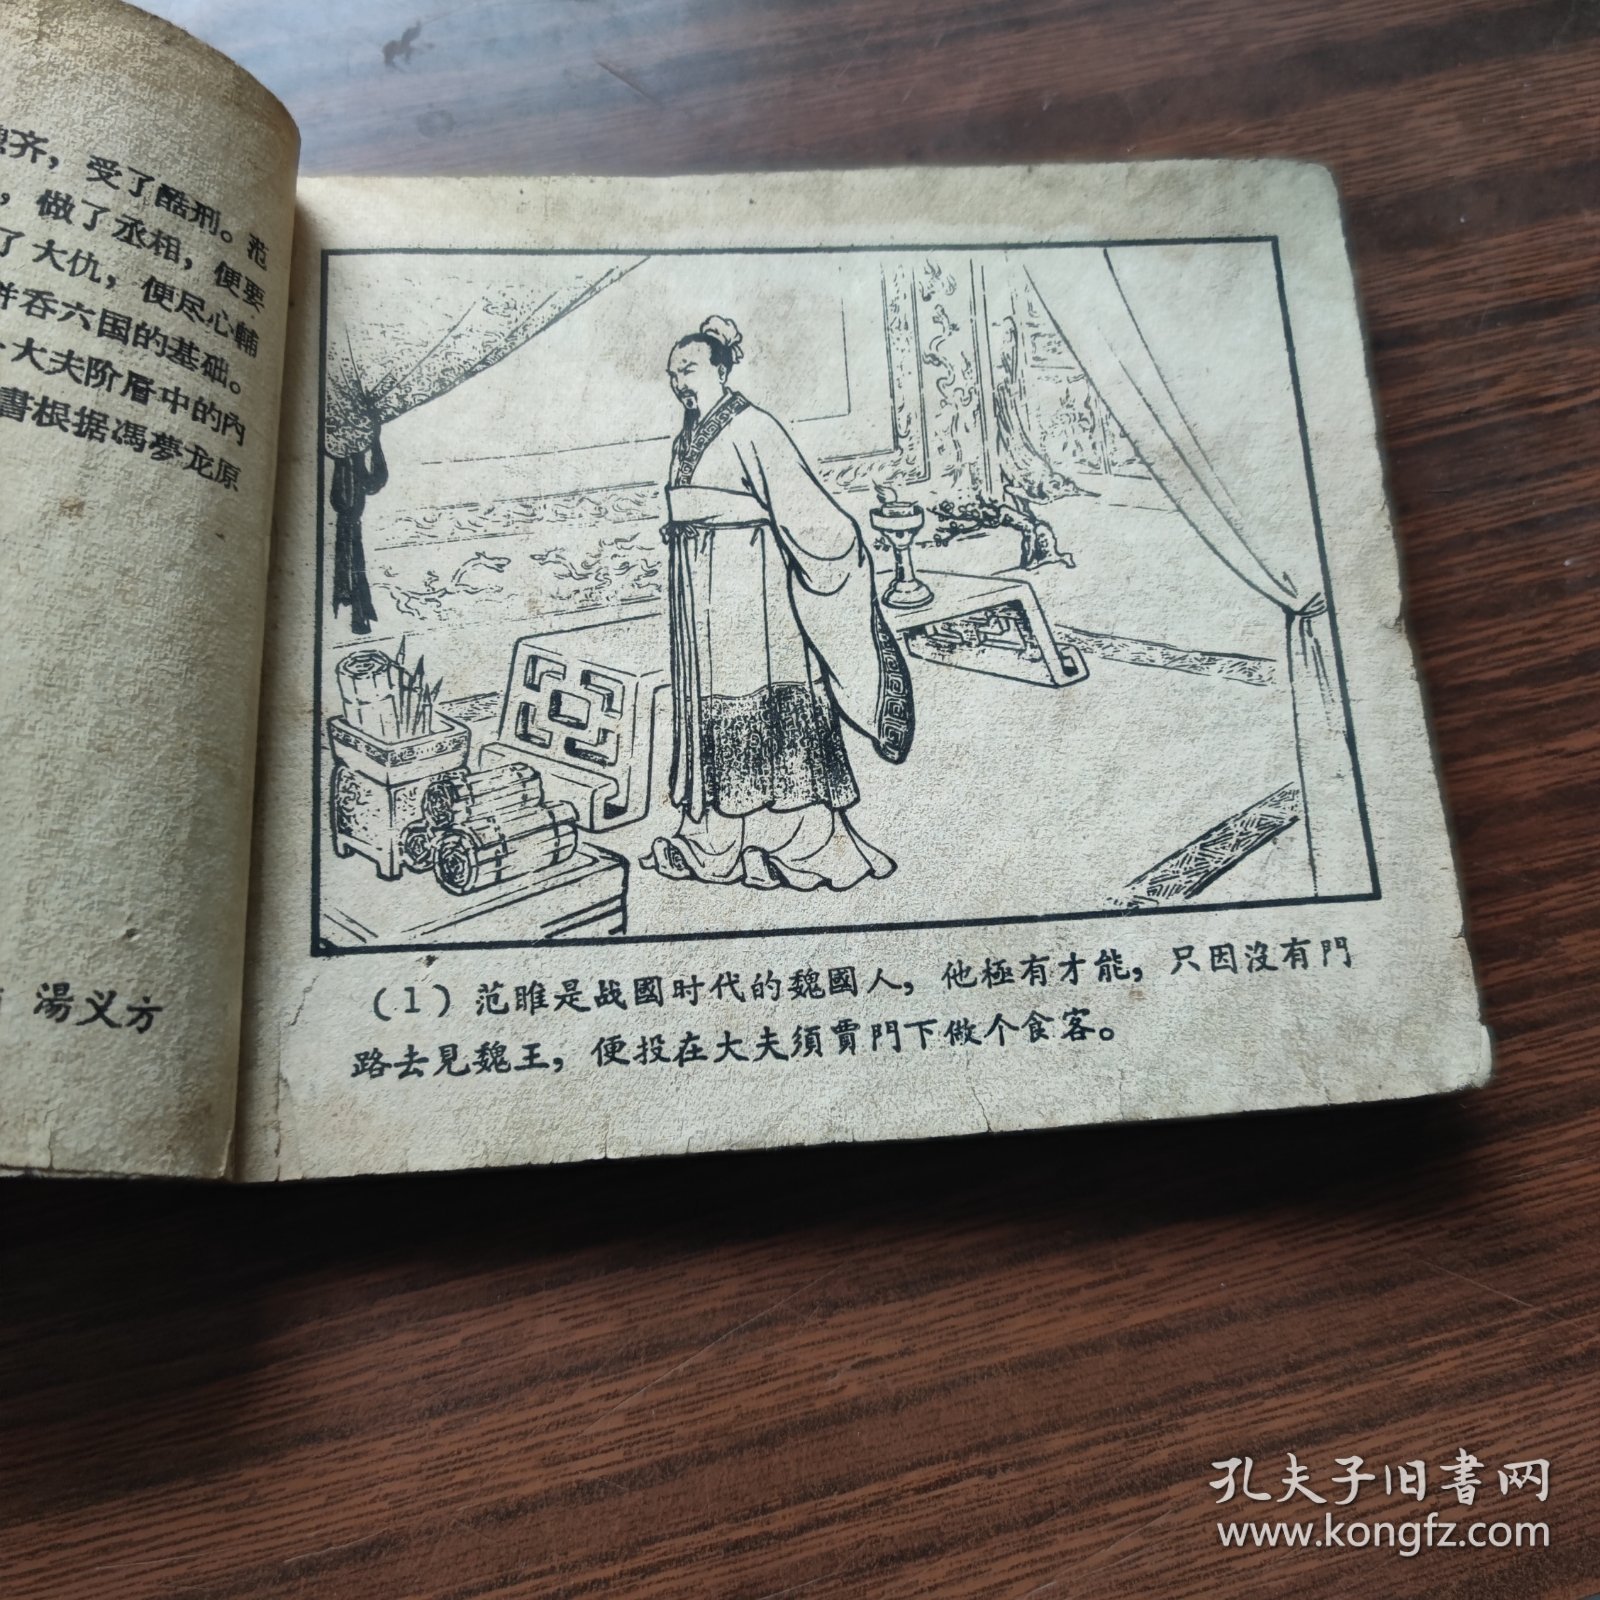 齐，受了酷刑。范
，做了丞相，便要
了大仇，便尽心輔
并吞六国的基础。
大夫阶層中的內
書根据馮夢龙原
湯义方
(1) 范雎是战國时代的魏國人，他極有才能，只因沒有門
路去見魏王，便投在大夫須賈門下做个食客。
孔夫子旧書网
www.kongfz.com